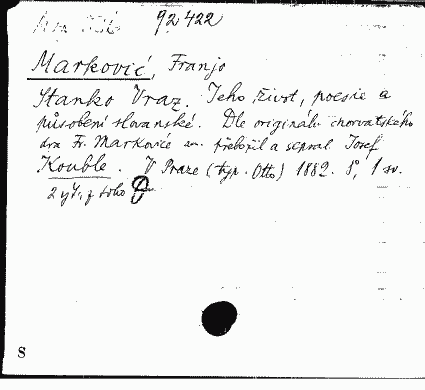 92422
Marković, Franjo
Stanko Vraz. Jeho život, poesie a
působení slovanské. Dle originálu chorvatského
dra Fr. Markoviće přeložil a sepsal Josef
Kouble. V Praze (typ. Otto) 1882. 8°, 1 sv.
z toho
S